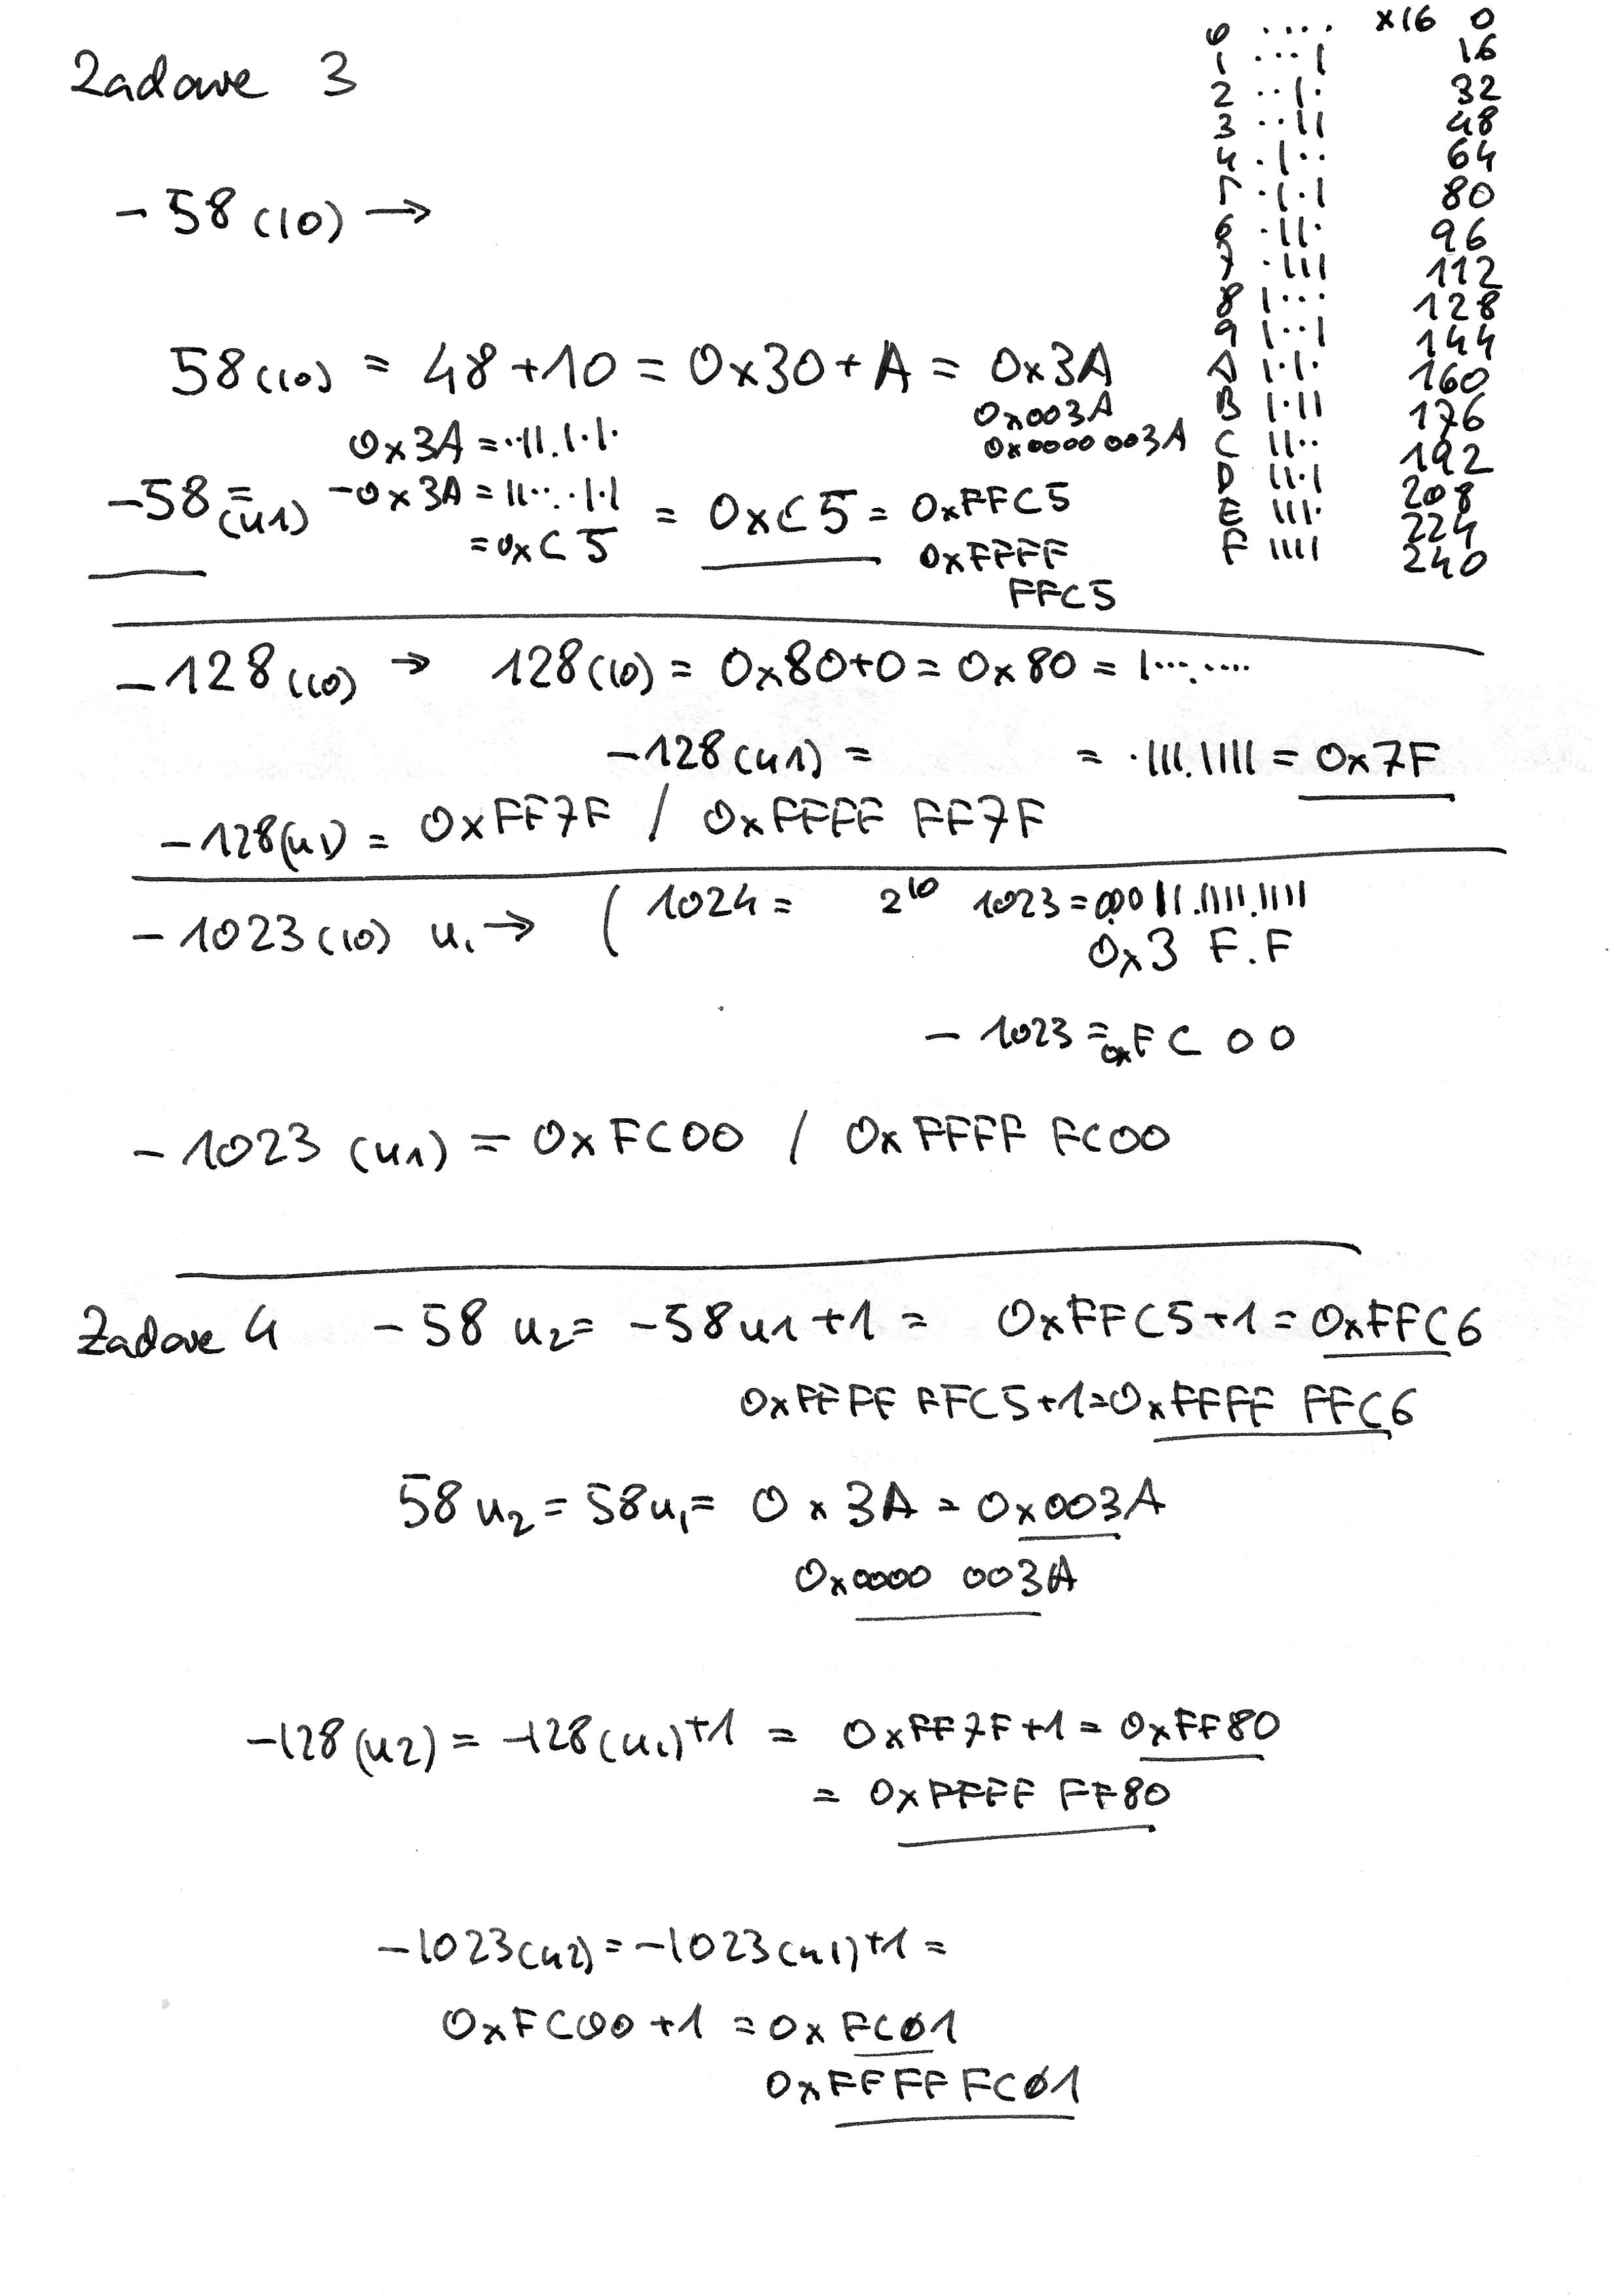 Zadanie 3
0 .... x16 0
1 ...1 16
2 ..1. 32
3 ..11 48
4 .1.. 64
5 .1.1 80
6 .11. 96
7 .111 112
8 1... 128
9 1..1 144
A 1.1. 160
B 1.11 176
C 11.. 192
D 11.1 208
E 111. 224
F 1111 240
-58 (10) →
58 (10) = 48 + 10 = 0x30 + A = 0x3A
0x003A
0x3A = ..11.1.1. 0x0000 003A
-58 (u1) = -0x3A = 11...1.1 = 0xC5 = 0xFFC5
= 0xC5 0xFFFF
FFC5
-128 (10) → 128 (10) = 0x80+0 = 0x80 = 1... ....
-128 (u1) = = .111.1111 = 0x7F
-128 (u1) = 0xFF7F / 0xFFFF FF7F
-1023 (10) u1 → ( 1024 = 2^10 1023 = 0011.1111.1111
0x3 F.F
-1023 = 0xFC 00
-1023 (u1) = 0xFC00 / 0xFFFF FC00
Zadanie 4 -58 u2 = -58 u1 +1 = 0xFFC5+1 = 0xFFC6
0xFFFF FFC5+1=0xFFFF FFC6
58 u2 = 58 u1 = 0x3A = 0x003A
0x0000 003A
-128 (u2) = -128 (u1) +1 = 0xFF7F+1 = 0xFF80
= 0xFFFF FF80
-1023 (u2) = -1023 (u1) +1 =
0xFC00 +1 = 0xFC01
0xFFFF FC01